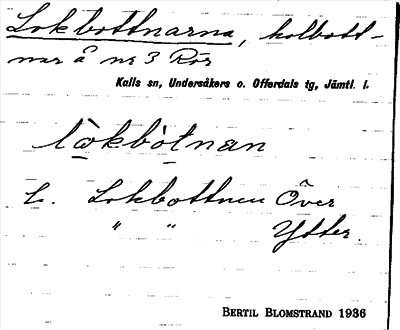 Lokbottnarna, kolbott-
nar å nr 3 Rör
Kalls sn, Undersåkers o. Offerdals tg, Jämtl. l.
lo̯kbòtnan
L. Lokbottnen Över
" " Ytter.
BERTIL BLOMSTRAND 1936